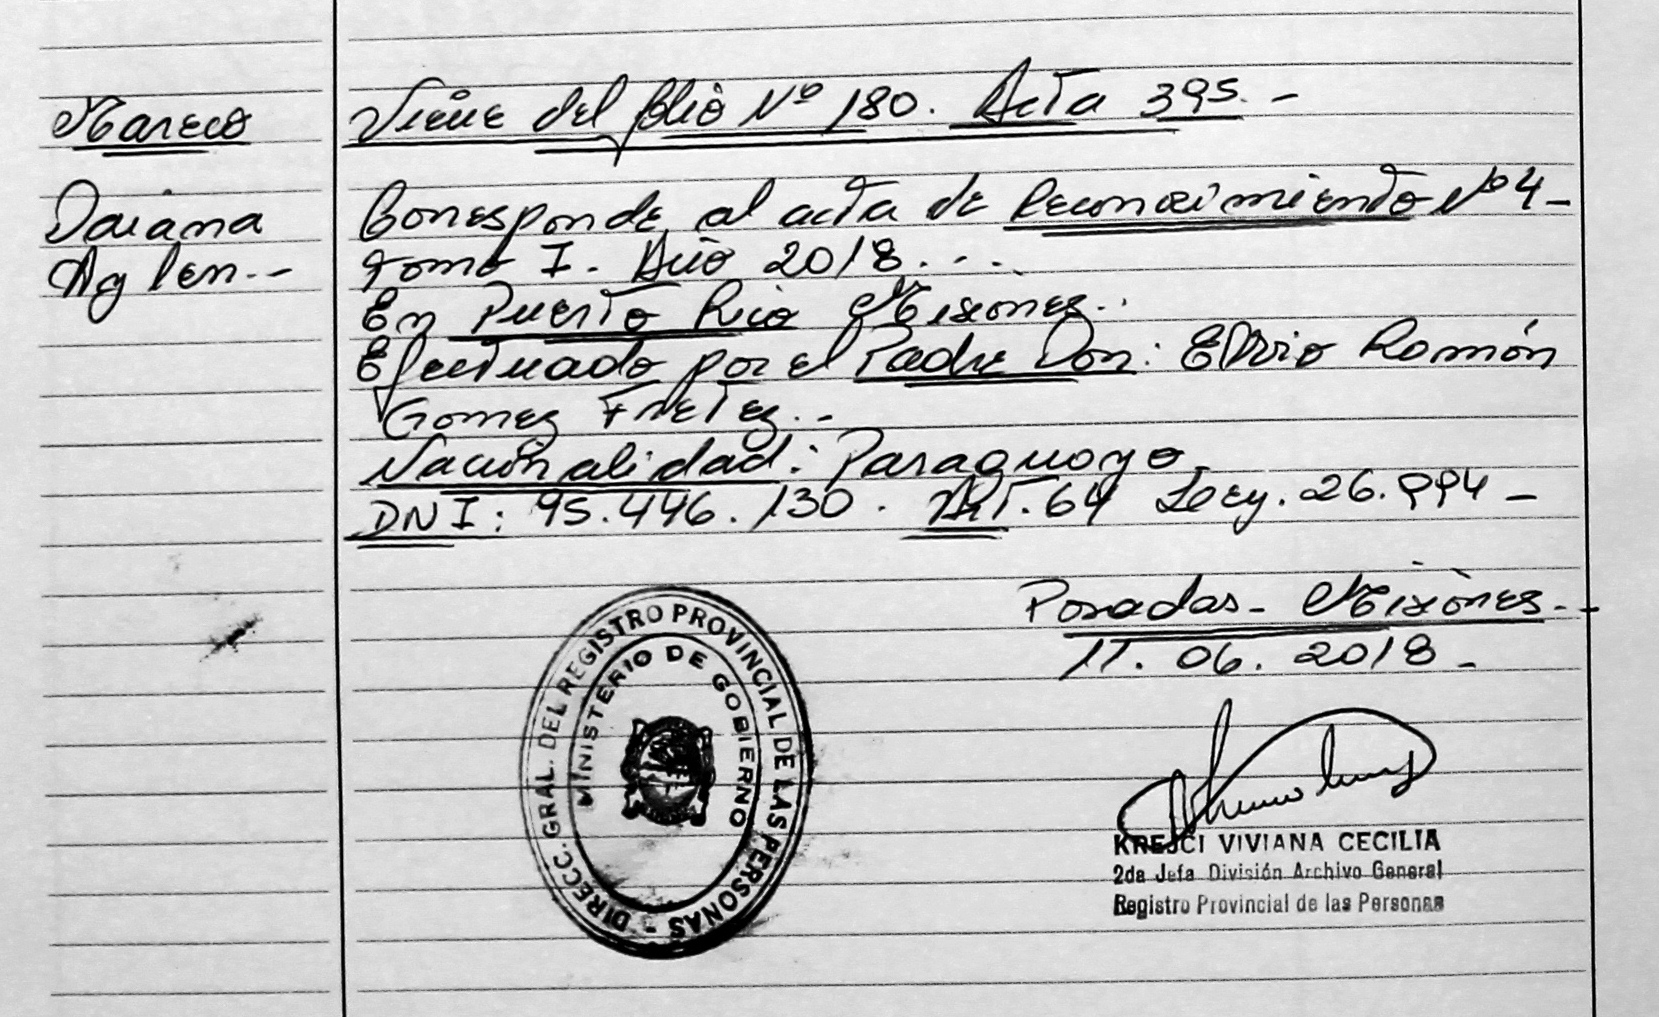 Mareco
Daiana
Aylen.--
Viene del folio Nº 180. Acta 395. -
Corresponde al acta de Reconocimiento Nº 4-
Tomo I. Año 2018....
En Puerto Rico Misiones..
Efectuado por el Padre Don: Elvio Román
Gomez Fretez..-
Nacionalidad: Paraguayo
DNI: 95.446.130. Art. 64 Ley. 26.994 -
Posadas- Misiones.-
11. 06. 2018 -
DIRECC. GRAL. DEL REGISTRO PROVINCIAL DE LAS PERSONAS -
MINISTERIO DE GOBIERNO
KREJCI VIVIANA CECILIA
2da Jefa División Archivo General
Registro Provincial de las Personas